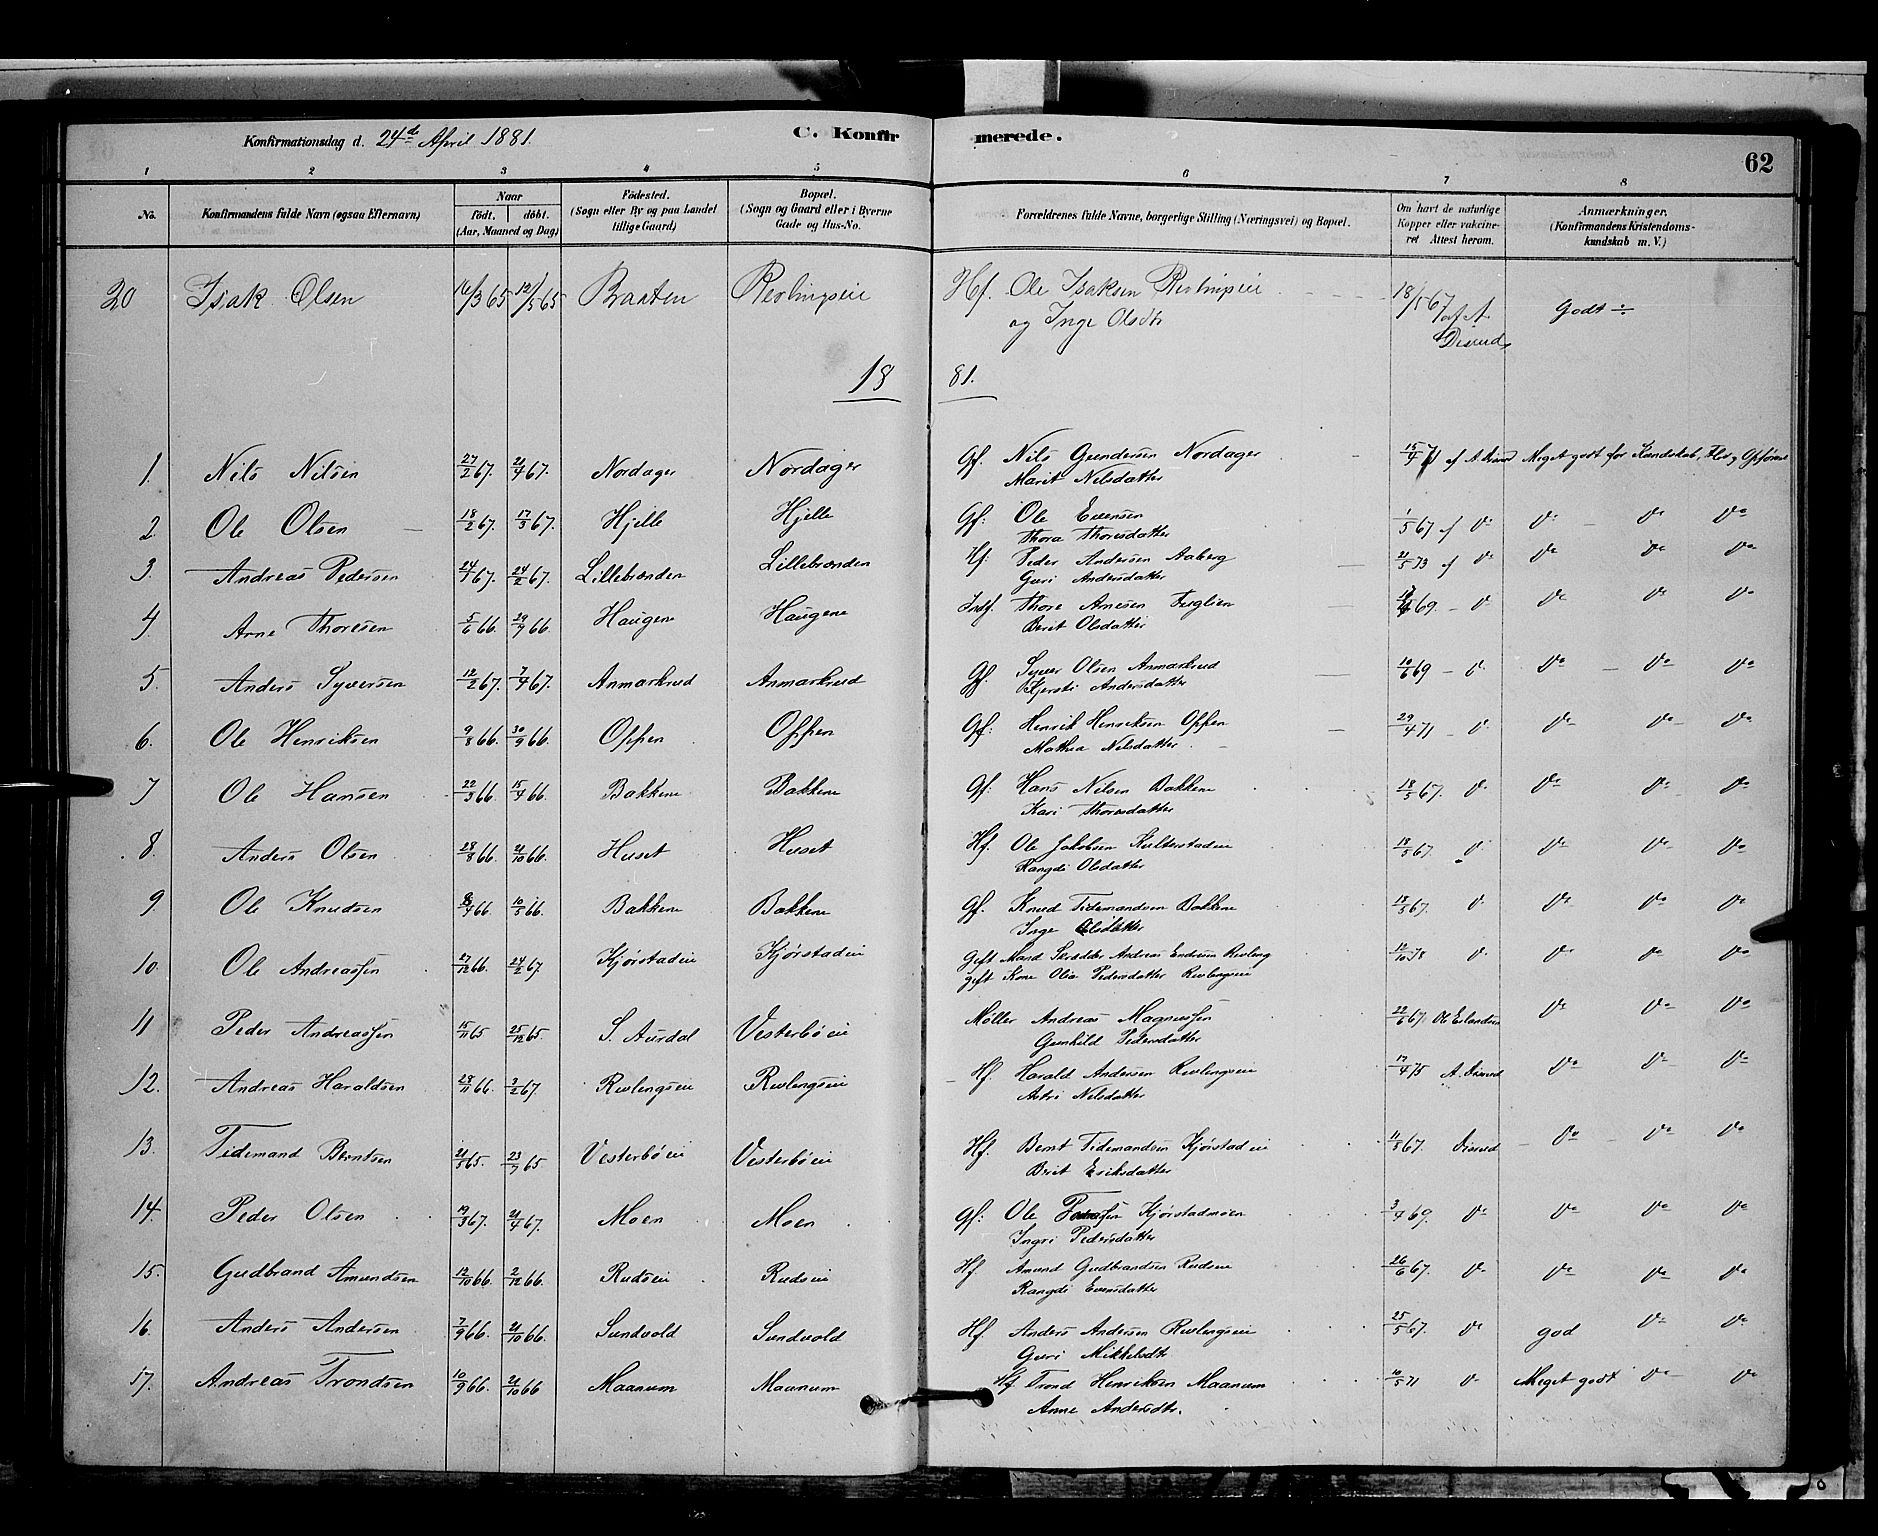 Konfirmationsdag d. 24de April 1881. C. Konfirmerede. 62
1 2 3 4 5 6 7 8
No. Konfirmandens fulde Navn (ogsaa Efternavn) Naar født. døbt. (Aar, Maaned og Dag) Fødested. (Sogn eller By og paa Landet tillige Gaard) Bopæl. (Sogn og Gaard eller i Byerne Gade og Hus-No. Forældrenes fulde Navne, borgerlige Stilling (Næringsvei) og Bopæl. Om havt de naturlige Kopper eller vaccineret Attest herom. Anmærkninger. (Konfirmandens Kristendomskundskab m. V.)
20 Isak Olsen 16/3 65 12/5 65 Braaten Revlingseie Hf. Ole Isaksen Revlingseie 18/5 67 af A Disrud Godt ÷
og Inge Olsdtr
1881.
1. Nils Nilsen 27/2 67. 21/4 67. Nordager Nordager Gf. Nils Gundersen Nordager 15/4 71 af A. Disrud Meget godt for Kundskab, Flid og Opførsel
Marit Nilsdatter
2. Ole Olsen 18/2 67. 17/3 67. Hjelle Hjelle Gf: Ole Evensen 1/5 67 af Do Do Do Do
Thora Thoresdatter
3. Andreas Pedersen 24/1 67. 24/2 67. Lillebrænden Lillebrænden Hf: Peder Andersen Aaberg 21/5 73 af Do Do Do Do
Guri Andersdatter
4 Arne Thoresen 5/6 66. 29/7 66. Haugene Haugene Indf. Thore Arnesen Fuglien 69. Do Do Do Do
Berit Olsdatter
5. Anders Syversen 12/2 67. 7/4 67. Anmarkrud Anmarkrud Gf. Syver Olsen Anmarkrud 10/6 69 Do Do Do Do
Kjersti Andersdatter
6. Ole Henriksen 9/8 66. 30/9 66. Oppen Oppen Gf: Henrik Henriksen Oppen 29/4 71 Do Do Do Do
Mathea Nilsdatter
7 Ole Hansen 22/3 66. 15/4 66. Bakkene Bakkene Gf: Hans Nilsen Bakkene 18/5 67. Do Do Do Do
Kari Thoresdatter
8. Anders Olsen 28/8 66. 21/10 66. Huset Huset Hf. Ole Jakobsen 18/5 67. Do Do Do Do
Rangdi Olsdatter
9. Ole Knudsen 8/4 66. 10/5 66. Bakkene Bakkene Gf. Knud Tidemandsen Bakkene 18/5 67. Do Do Do Do
Inge Olsdatter
10. Ole Andreassen 27/12 66. 24/2 67. Kjørstadeie Kjørstadeie Gift Mand Skrædder Andreas Endresen Revling 12/10 78 Do Do Do Do
gift Kone Olia Pedersdatter Revlingseie
11 Peder Andreassen 15/11 65 25/12 65. S. Aurdal Vesterbøeie Møller Andreas Magnussen 22/6 67. Ole Erlandsen Do Do Do
Gunhild Pedersdatter
12. Andreas Haraldsen 28/11 66. 3/2 67. Revlengseie Revlengseie Hf. Harald Andersen Revlengseie 17/4 75 A. Disrud Do Do Do
Astri Nilsdatter
13. Tidemand Berntsen 21/5 65. 23/7 65 Vesterbøeie Vesterbøeie Hf. Bernt Tidemandsen Kjørstadeie 11/8 67. Disrud Do Do Do
Berit Eriksdatter
14. Peder Olsen 19/3 67. 21/4 67. Moen Moen Gf: Ole Kjørstadmoen 3/4 69. Do Do Do Do
Ingri Pedersdatter
15. Gudbrand Amundsen 12/10 66. 2/12 66. Rudseie Rudseie Hf Amund Gudbrandsen Rudseie 26/6 67. Do Do Do Do
Rangdi Evensdatter
16. Anders Andersen 7/9 66. 21/10 66. Sundvold Sundvold Hf Anders Andersen Revlengseie 25/5 67. Do god Do Do
Guri Mikkelsdtr
17. Andreas Trondsen 10/9 66. 21/10 66 Maanum Maanum Hf Trond Henriksen Maanum 10/5 71 Do Meget godt Do Do
Anne Andersdtr.